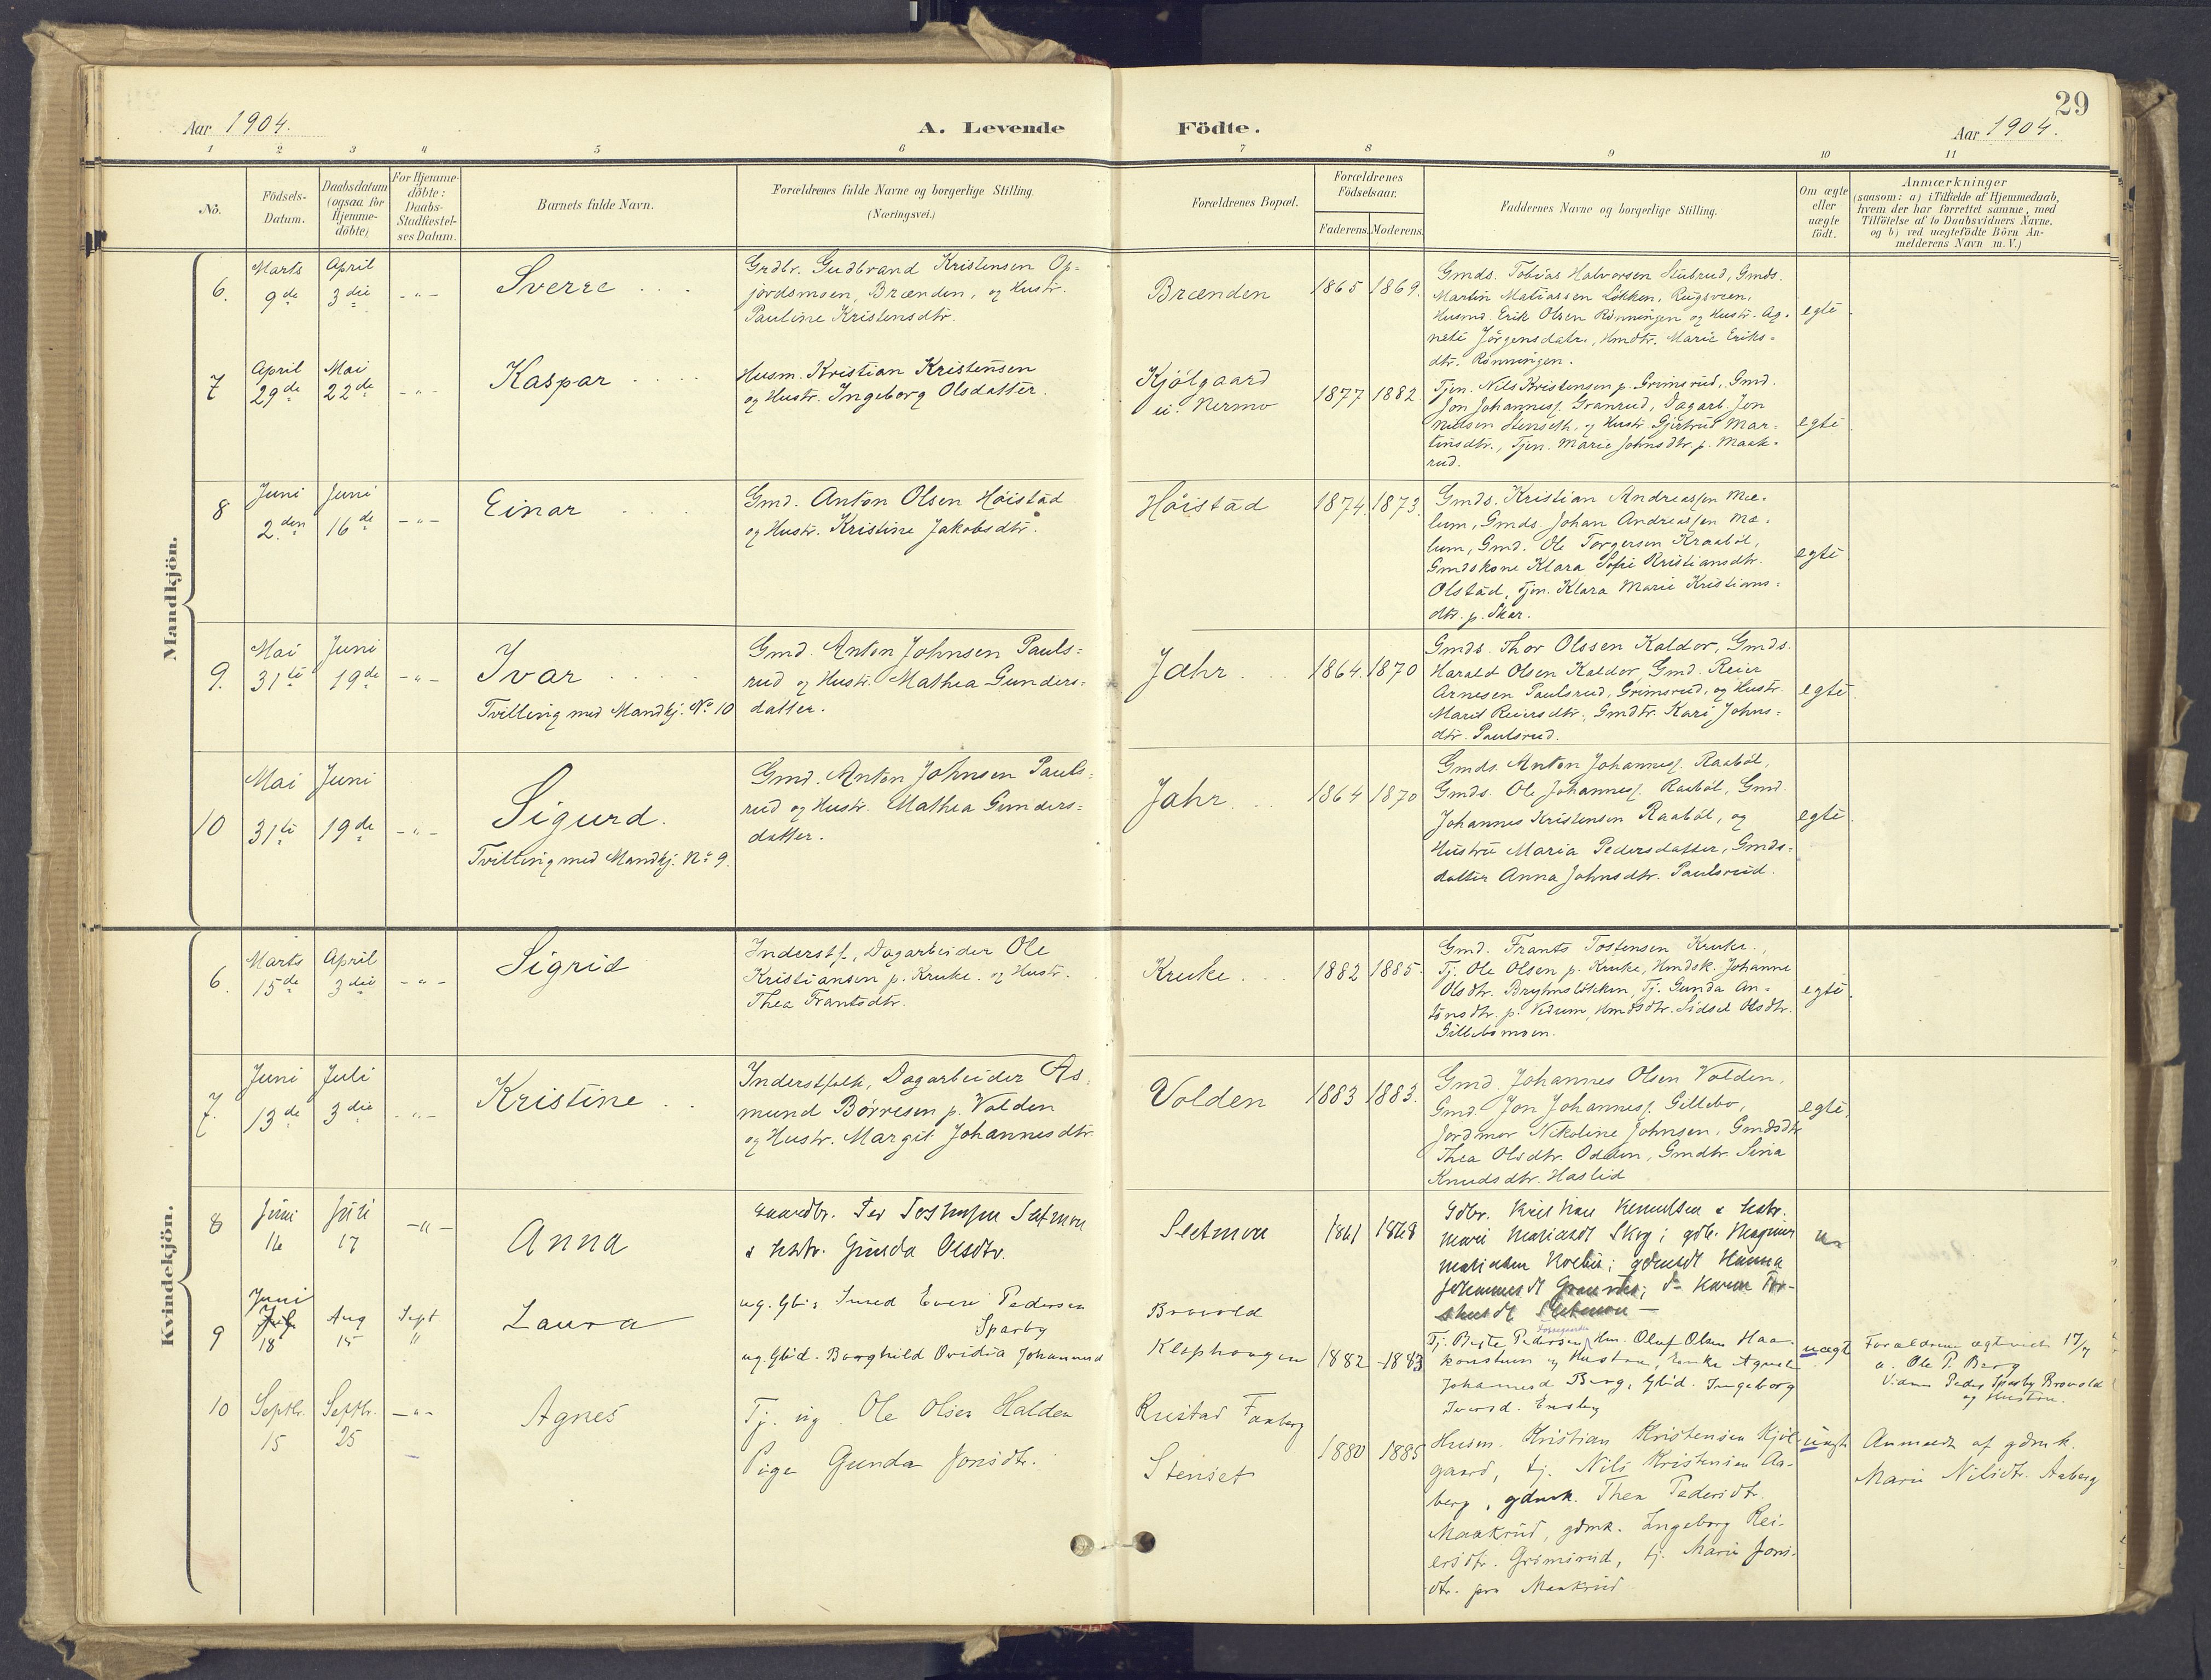 29
Aar 1904.
A. Levende Födte.
Aar 1904.
1 2 3 4 5 6 7 8 9 10 11
No.
Födsels-
Datum.
Daabsdatum
(ogsaa for
Hjemme-
döbte)
For Hjemme-
döbte:
Daabs-
Stadfæstel-
ses Datum.
Barnets fulde Navn.
Forældrenes fulde Navne og borgerlige Stilling.
(Næringsvei.)
Forældrenes Bopæl.
Forældrenes
Födselsaar.
Faderens. Moderens.
Faddernes Navne og borgerlige Stilling.
Om ægte
eller
uægte
födt.
Anmærkninger
(saasom: a) i Tilfælde af Hjemmedaab,
hvem der har forrettet samme, med
Tilföielse af to Daabsvidners Navne.
og b) ved uægtefödte Börn An-
melderens Navn m. V.)
Mandkjön.
6.
Marts
9de
April
3die
- " -
Sverre
Grdbr. Gudbrand Kristensen Op=
jordsmoen, Brænden, og Hustr.
Pauline Kristensdtr.
Brænden
1865 1869.
Gmds. Tobias Halvorsen Stubrud, Gmds.
Martin Matiassen Løkken, Rugsveen,
Husmd. Erik Olsen Rønningen og Hustr. Ag=
nete Jörgensdatr., Hmdtr. Marie Eriks=
dtr. Rønningen.
egte.
7
April
29de
Mai
22de
- " -
Kaspar
Husm. Kristian Kristensen
og Hustr. Ingeborg Olsdatter.
Kjølgaard
u. Nermo
1877 1882
Tjen. Nils Kristensen p. Grimsrud, Gmd.
Jon Johanness. Granrud, Dagarb. Jon
Nielsen Stenseth, og Hustr. Gjertrud Mar=
tinsdtr., Tjen. Marie Johnsdtr. p. Maak=
rud.
egte.
8
Juni
2.den
Juni
16de
- " -
Einar
Gmd. Anton Olsen Høistad
og Hustr. Kristine Jakobsdtr.
Høistad
1874. 1873.
Gmds. Kristian Andreassen Mæ=
lum, Gmds. Johan Andreassen Mæ=
lum, Gmd. Ole Torgersen Kraabøl,
Gmdskone Klara Sofie Kristiansdtr.
Olstad, Tjen. Klara Marie Kristians=
dtr. p. Skar.
egte
9.
Mai
31te
Juni
19de
- " -
Ivar
Tvilling med Mandkj. No 10
Gmd. Anton Johnsen Pauls=
rud og Hustr. Mathea Gunders=
datter.
Jahr.
1864. 1870
Gmds. Thor Olssen Kaldor, Gmds.
Harald Olsen Kaldor, Gmd. Reier
Arnesen Paulsrud, Grimsrud, og Hustr.
Marit Reiersdtr., Gmdtr. Kari Johns=
dtr. Paulsrud.
egte.
10
Mai
31te
Juni
19de
- " -
Sigurd.
Tvilling med Mandkj. No 9.
Gmd. Anton Johnsen Pauls=
rud og Hustr. Mathea Gunders=
datter.
Jahr.
1864 1870
Gmds. Anton Johanness. Raabøl,
Gmds. Ole Johanness. Raabøl, Gmd.
Johannes Kristensen Raabøl, og
Hustru Maria Pedersdatter, Gmds=
datter Anna Johnsdtr. Paulsrud.
egte.
Kvindekjön.
6.
Marts
15de
April
3die
- " -
Sigrid
Inderstf., Dagarbeider Ole
Kristiansen p. Kruke. og Hustr.
Thea Frantsdtr.
Kruke.
1882 1885.
Gmd. Frants Tostensen Kruke.,
Tj. Ole Olsen p. Kruke, Hmdsk. Johanne
Olsdtr. Bryhnsløkken, Tj. Gunda An=
tonsdtr. p. Vedum, Hmdsdtr. Sidsel Olsdtr.
Gillebomoen.
egte.
7.
Juni
13de
Juli
3die
- " -
Kristine
Inderstfolk, Dagarbeider As=
mund Børresen p. Volden
og Hustr. Margit Johannesdtr.
Volden
1883 1883.
Gmd. Johannes Olsen Volden,
Gmd. Jon Johanness. Gillebo,
Jordmor Nikoline Johnsen, Gmdsdtr
Thea Olsdtr. Odden, Gmdtr. Sina
Knudsdtr. Haslid
egte.
8
Juni
16
Juli
17
- " -
Anna
Gaardbr.
Gunda Olsdtr.
Sletmoen
1861 1868
Skog; gdb. Magnus
Hanna
9
Juni
18
Aug
15
Sept
"
Laura
ug. Gbs. Pedersen
Sparby
ug. Gbd. Borghild Ovidia Johannesd
Brovold
Klophaugen
1882 - 1883
Tj. Pedersen, Hm. Oluf Olsen Haa-
konstuen og Hustru, Enke Agnete
Johannesd Berg, Gbd. Ingeborg
Iversd.
uægt
Forældrene ægteviede 17/7
a. Ole P. Berg
Vidner Peder Sparby Brovold
og Hustru.
10
Septbr.
15
Septbr.
25
- " -
Agnes
Tj. ug. Ole Olsen Halden
Pige Gunda Jonsdtr.
Faaberg
Stenset
1880 1885
Husm. Kristian Kristensen Kjøl-
gaard, tj. Nils Kristensen Aa-
berg, gdmk. Thea Pedersdtr.
Maakrud, gdmk. Ingeborg Rei-
ersdtr. Grimsrud, tj. Marie Jons-
dtr. paa Maakrud
uægte
Anmeldt af gdmk.
Marie Nilsdtr. Aaberg